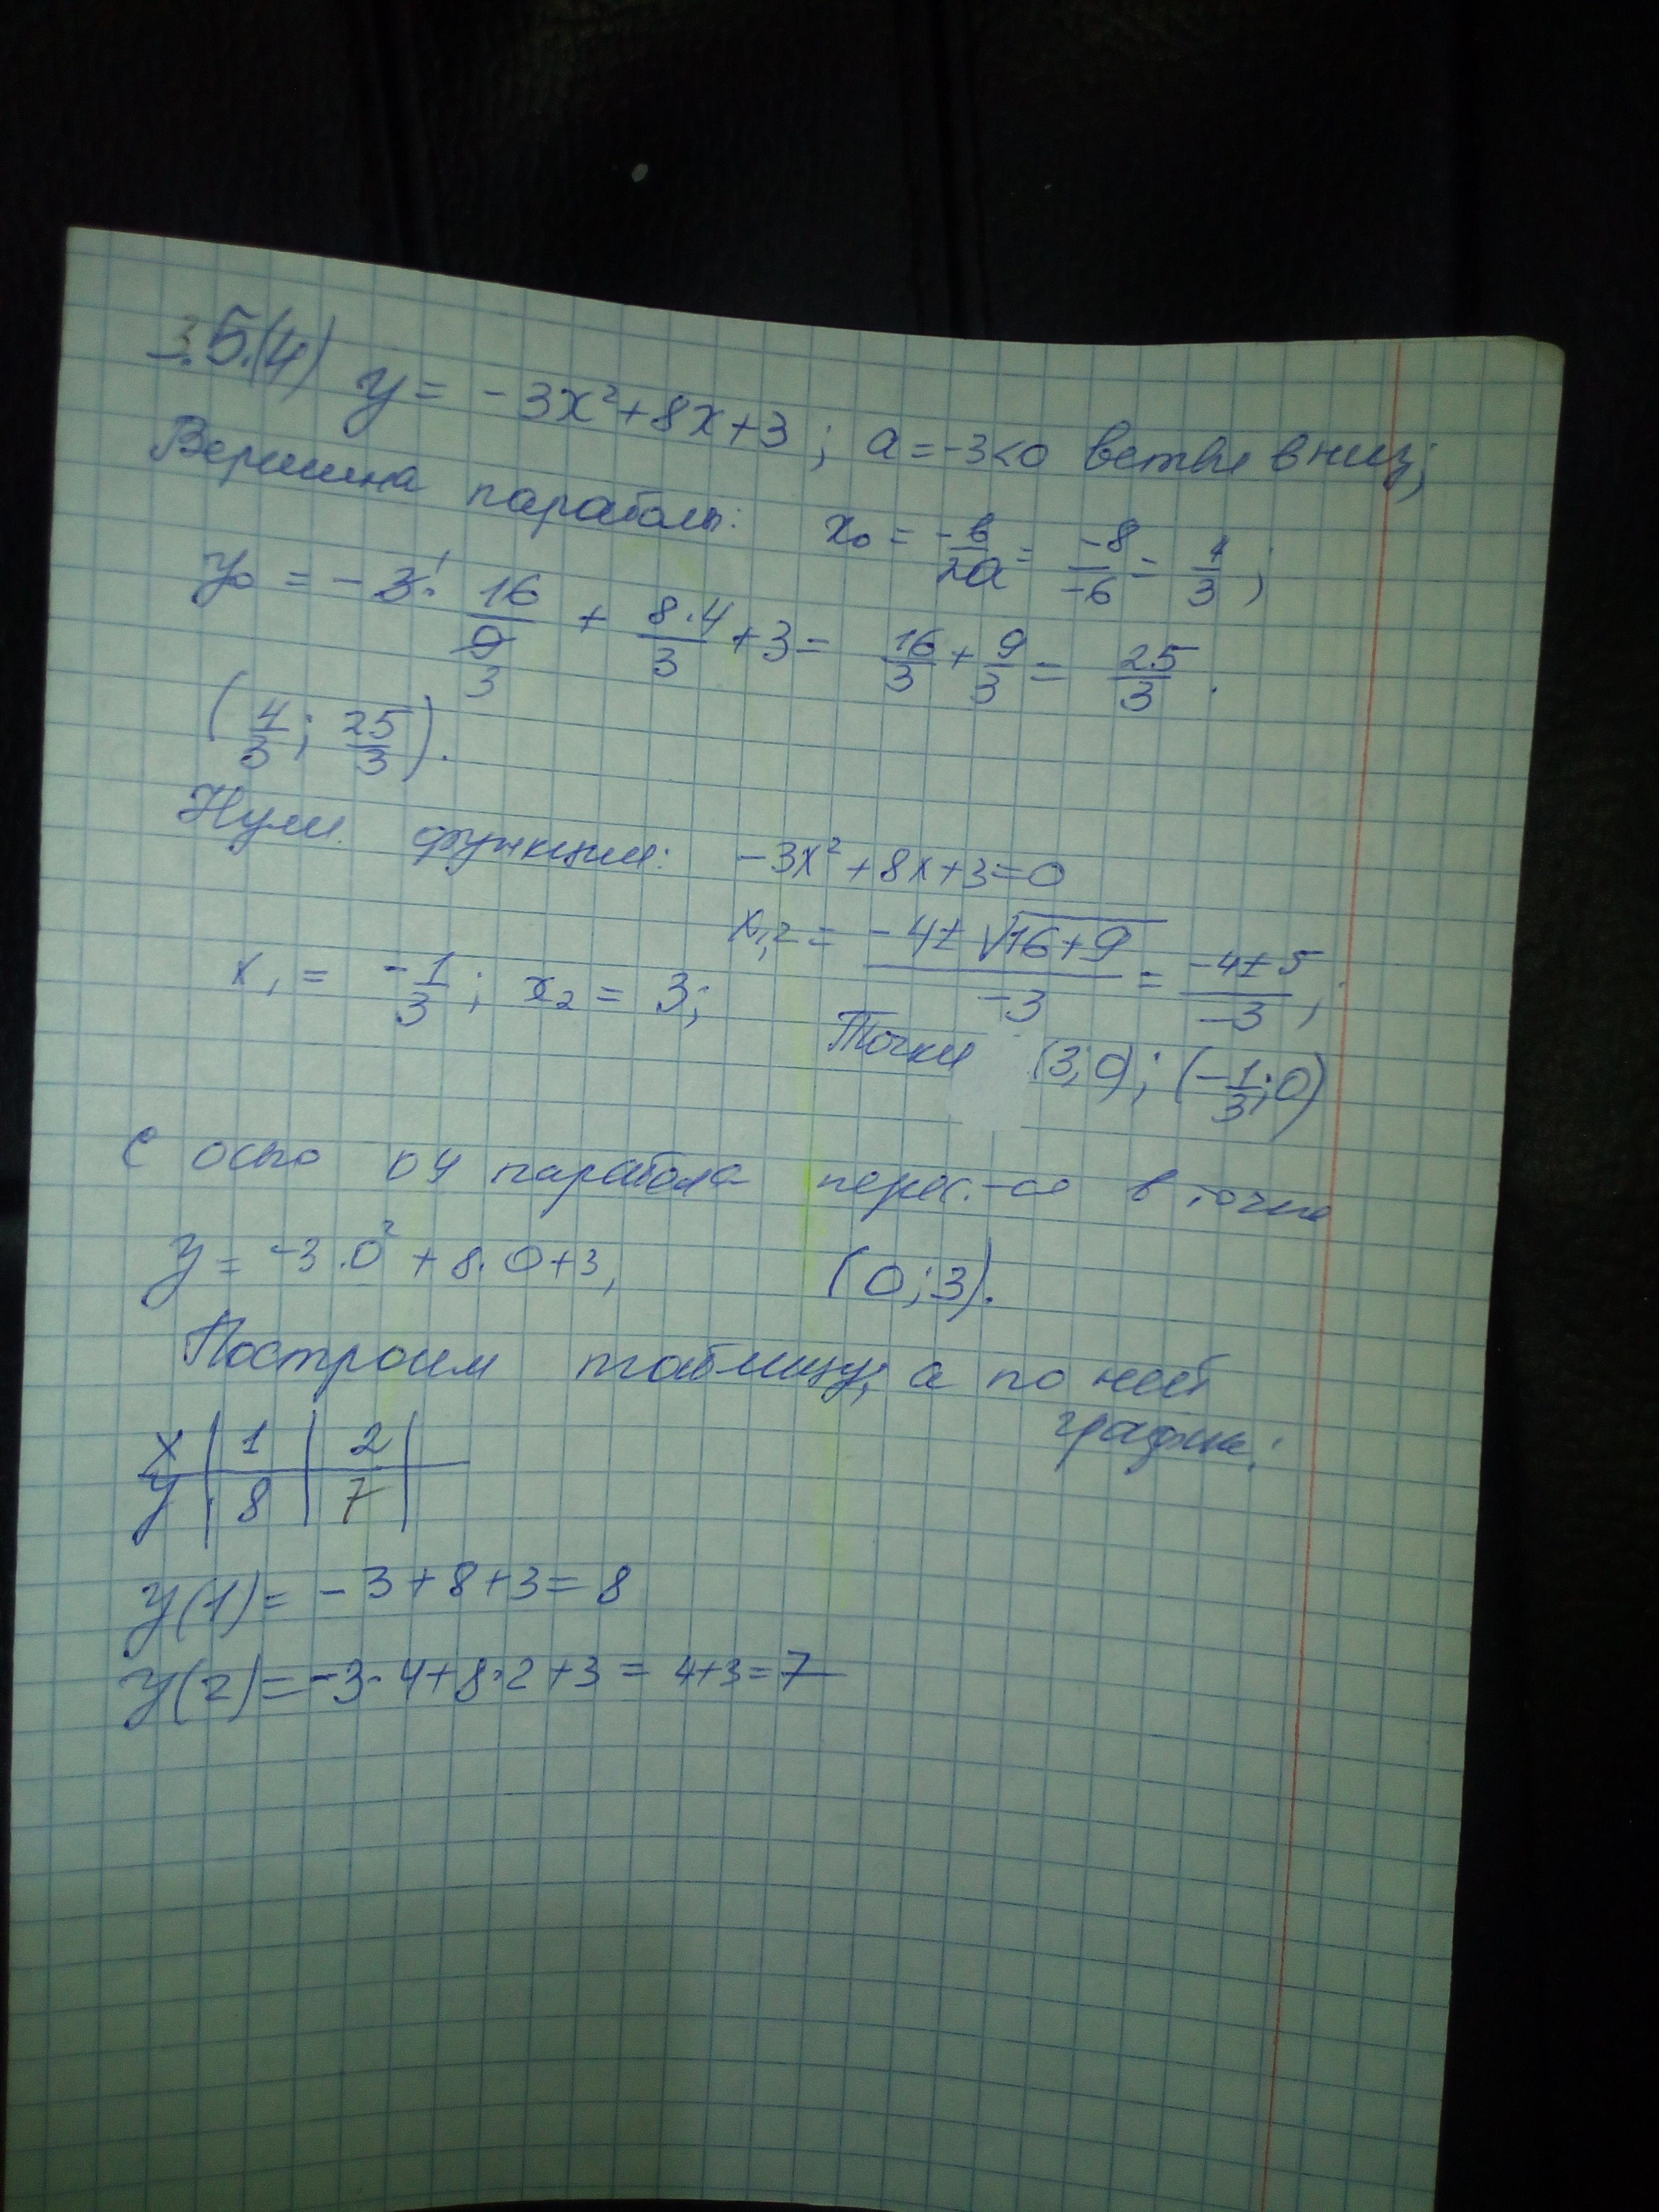 3.5.(4) y = -3x²+8x+3; a=-3<0 ветви вниз;
Вершина параболы: x₀ = -в/2a = -8/-6 = 4/3;
y₀ = -3·16/9 + 8·4/3 + 3 = 16/3 + 9/3 = 25/3.
(4/3; 25/3).
Нули функции: -3x²+8x+3=0
x₁,₂ = (-4±√16+9)/-3 = (-4±5)/-3;
x₁ = -1/3; x₂ = 3;
Точки (3;0); (-1/3;0)
С осью оу парабола перес.-ся в точке
y = -3·0²+8·0+3, (0;3).
Построим таблицу, а по ней
график:
x | 1 | 2 |
y | 8 | 7 |
y(1) = -3+8+3 = 8
y(2) = -3·4+8·2+3 = 4+3 = 7